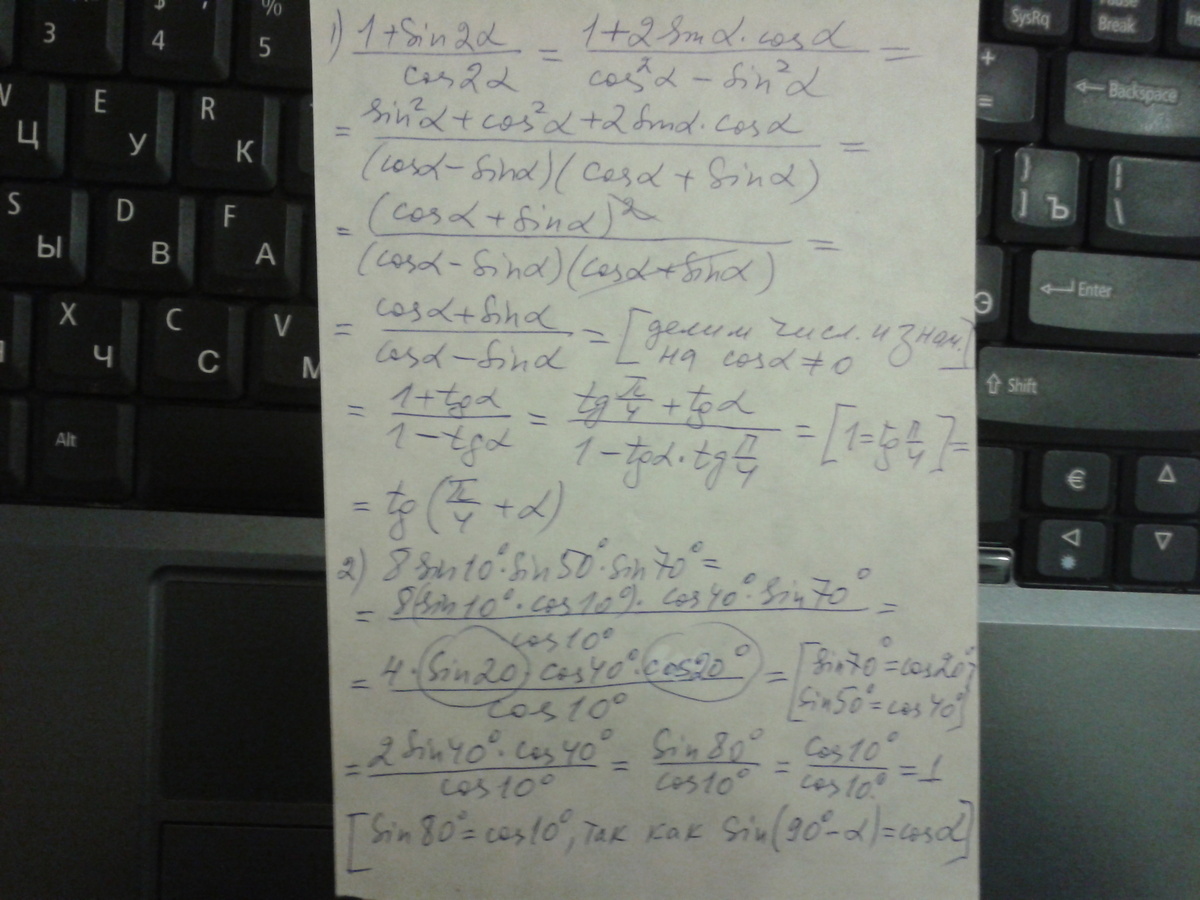 1) (1+sin2α)/(cos2α) = (1+2sinα·cosα)/(cos²α − sin²α) =
= (sin²α + cos²α + 2sinα·cosα)/((cosα − sinα)(cosα + sinα)) =
= (cosα + sinα)²/((cosα − sinα)(cosα + sinα)) =
= (cosα + sinα)/(cosα − sinα) = [делим числ. и знам. на cosα ≠ 0]
= (1+tgα)/(1−tgα) = (tg π/4 + tgα)/(1 − tgα·tg π/4) = [1 = tg π/4] =
= tg(π/4 + α)
2) 8 sin10°·sin50°·sin70° =
= (8(sin10°·cos10°)·cos40°·sin70°)/(cos10°) =
= (4·sin20·cos40°·cos20°)/(cos10°) = [sin70° = cos20° sin50° = cos40°]
= (2 sin40°·cos40°)/(cos10°) = (sin80°)/(cos10°) = (cos10°)/(cos10°) = 1
[sin80° = cos10°, так как sin(90° − α) = cosα]
3
$
4
%
5
SysRq
Pause
Break
V
E
R
Ц
У
К
+
=
Backspace
S
D
F
Ы
В
А
}
]
Ъ
|
\
X
C
V
Ч
С
М
Э
Enter
Shift
Alt
€